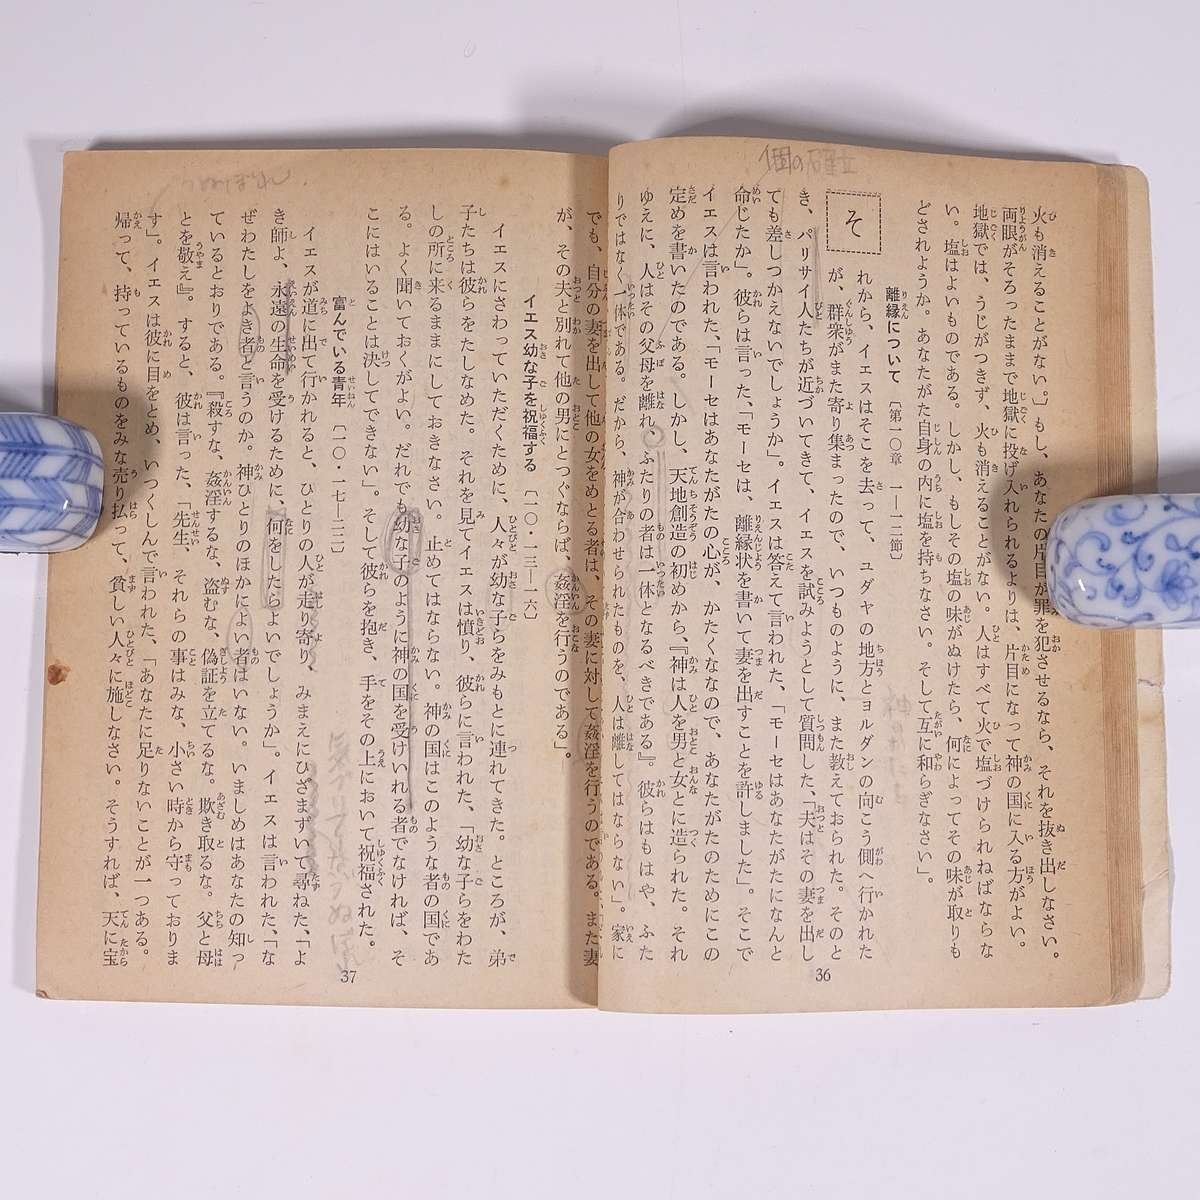 火も消えることがない。〕もし、あなたの片目が罪を犯させるなら、それを抜き出しなさい。
両眼がそろったままで地獄に投げ入れられるよりは、片目になって神の国に入る方がよい。
地獄では、うじがつきず、火も消えることがない。人はすべて火で塩づけられねばならな
い。塩はよいものである。しかし、もしその塩の味がぬけたら、何によってその味が取りも
どされようか。あなたがた自身の内に塩を持ちなさい。そして互に和らぎなさい」。
離縁について 〔第一〇章 一—一二節〕
そ
れから、イエスはそこを去って、ユダヤの地方とヨルダンの向こう側へ行かれた
が、群衆がまた寄り集まったので、いつものように、また教えておられた。そのと
き、パリサイ人たちが近づいてきて、イエスを試みようとして質問した、「夫はその妻を出し
ても差しつかえないでしょうか」。イエスは答えて言われた、「モーセはあなたがたになんと
命じたか」。彼らは言った、「モーセは、離縁状を書いて妻を出すことを許しました」。そこで
イエスは言われた、「モーセはあなたがたの心が、かたくななので、あなたがたのためにこの
定めを書いたのである。しかし、天地創造の初めから、『神は人を男と女とに造られた。それ
ゆえに、人はその父母を離れ、ふたりの者は一体となるべきである』。彼らはもはや、ふた
りではなく一体である。だから、神が合わせられたものを、人は離してはならない」。家に
36
でも、自分の妻を出して他の女をめとる者は、その妻に対して姦淫を行うのである。また妻
が、その夫と別れて他の男にとつぐならば、姦淫を行うのである」。
イエス幼な子を祝福する 〔一〇・一三—一六〕
イエスにさわっていただくために、人々が幼な子らをみもとに連れてきた。ところが、弟
子たちは彼らをたしなめた。それを見てイエスは憤り、彼らに言われた、「幼な子らをわた
しの所に来るままにしておきなさい。止めてはならない。神の国はこのような者の国であ
る。よく聞いておくがよい。だれでも幼な子のように神の国を受けいれる者でなければ、そ
こにはいることは決してできない」。そして彼らを抱き、手をその上において祝福された。
富んでいる青年 〔一〇・一七—二二〕
イエスが道に出て行かれると、ひとりの人が走り寄り、みまえにひざまずいて尋ねた、「よ
き師よ、永遠の生命を受けるために、何をしたらよいでしょうか」。イエスは言われた、「な
ぜわたしをよき者と言うのか。神ひとりのほかによい者はいない。いましめはあなたの知っ
ているとおりである。『殺すな、姦淫するな、盗むな、偽証を立てるな。欺き取るな。父と母
とを敬え』。すると、彼は言った、「先生、それらの事はみな、小さい時から守っておりま
す」。イエスは彼に目をとめ、いつくしんで言われた、「あなたに足りないことが一つある。
帰って、持っているものをみな売り払って、貧しい人々に施しなさい。そうすれば、天に宝
37